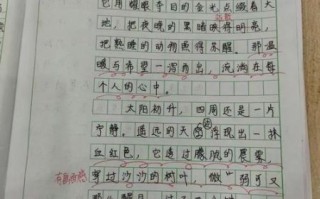 它用耀眼夺目的金光点缀着大
地，把夜晚的黑暗映得明亮，
把熟睡的动物画得苏醒。那温
暖与希望一泻而出，流淌在每
个人的心中。
太阳初升，四周还是一片
宁静。遥远的天边浮现出一抹
血红色，它透过朦胧的晨雾，
穿过沙沙的树叶，微弱可又